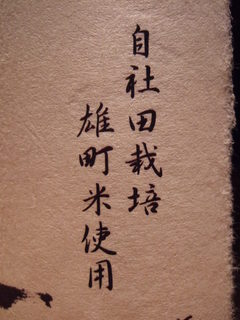 自社田栽培
雄町米使用